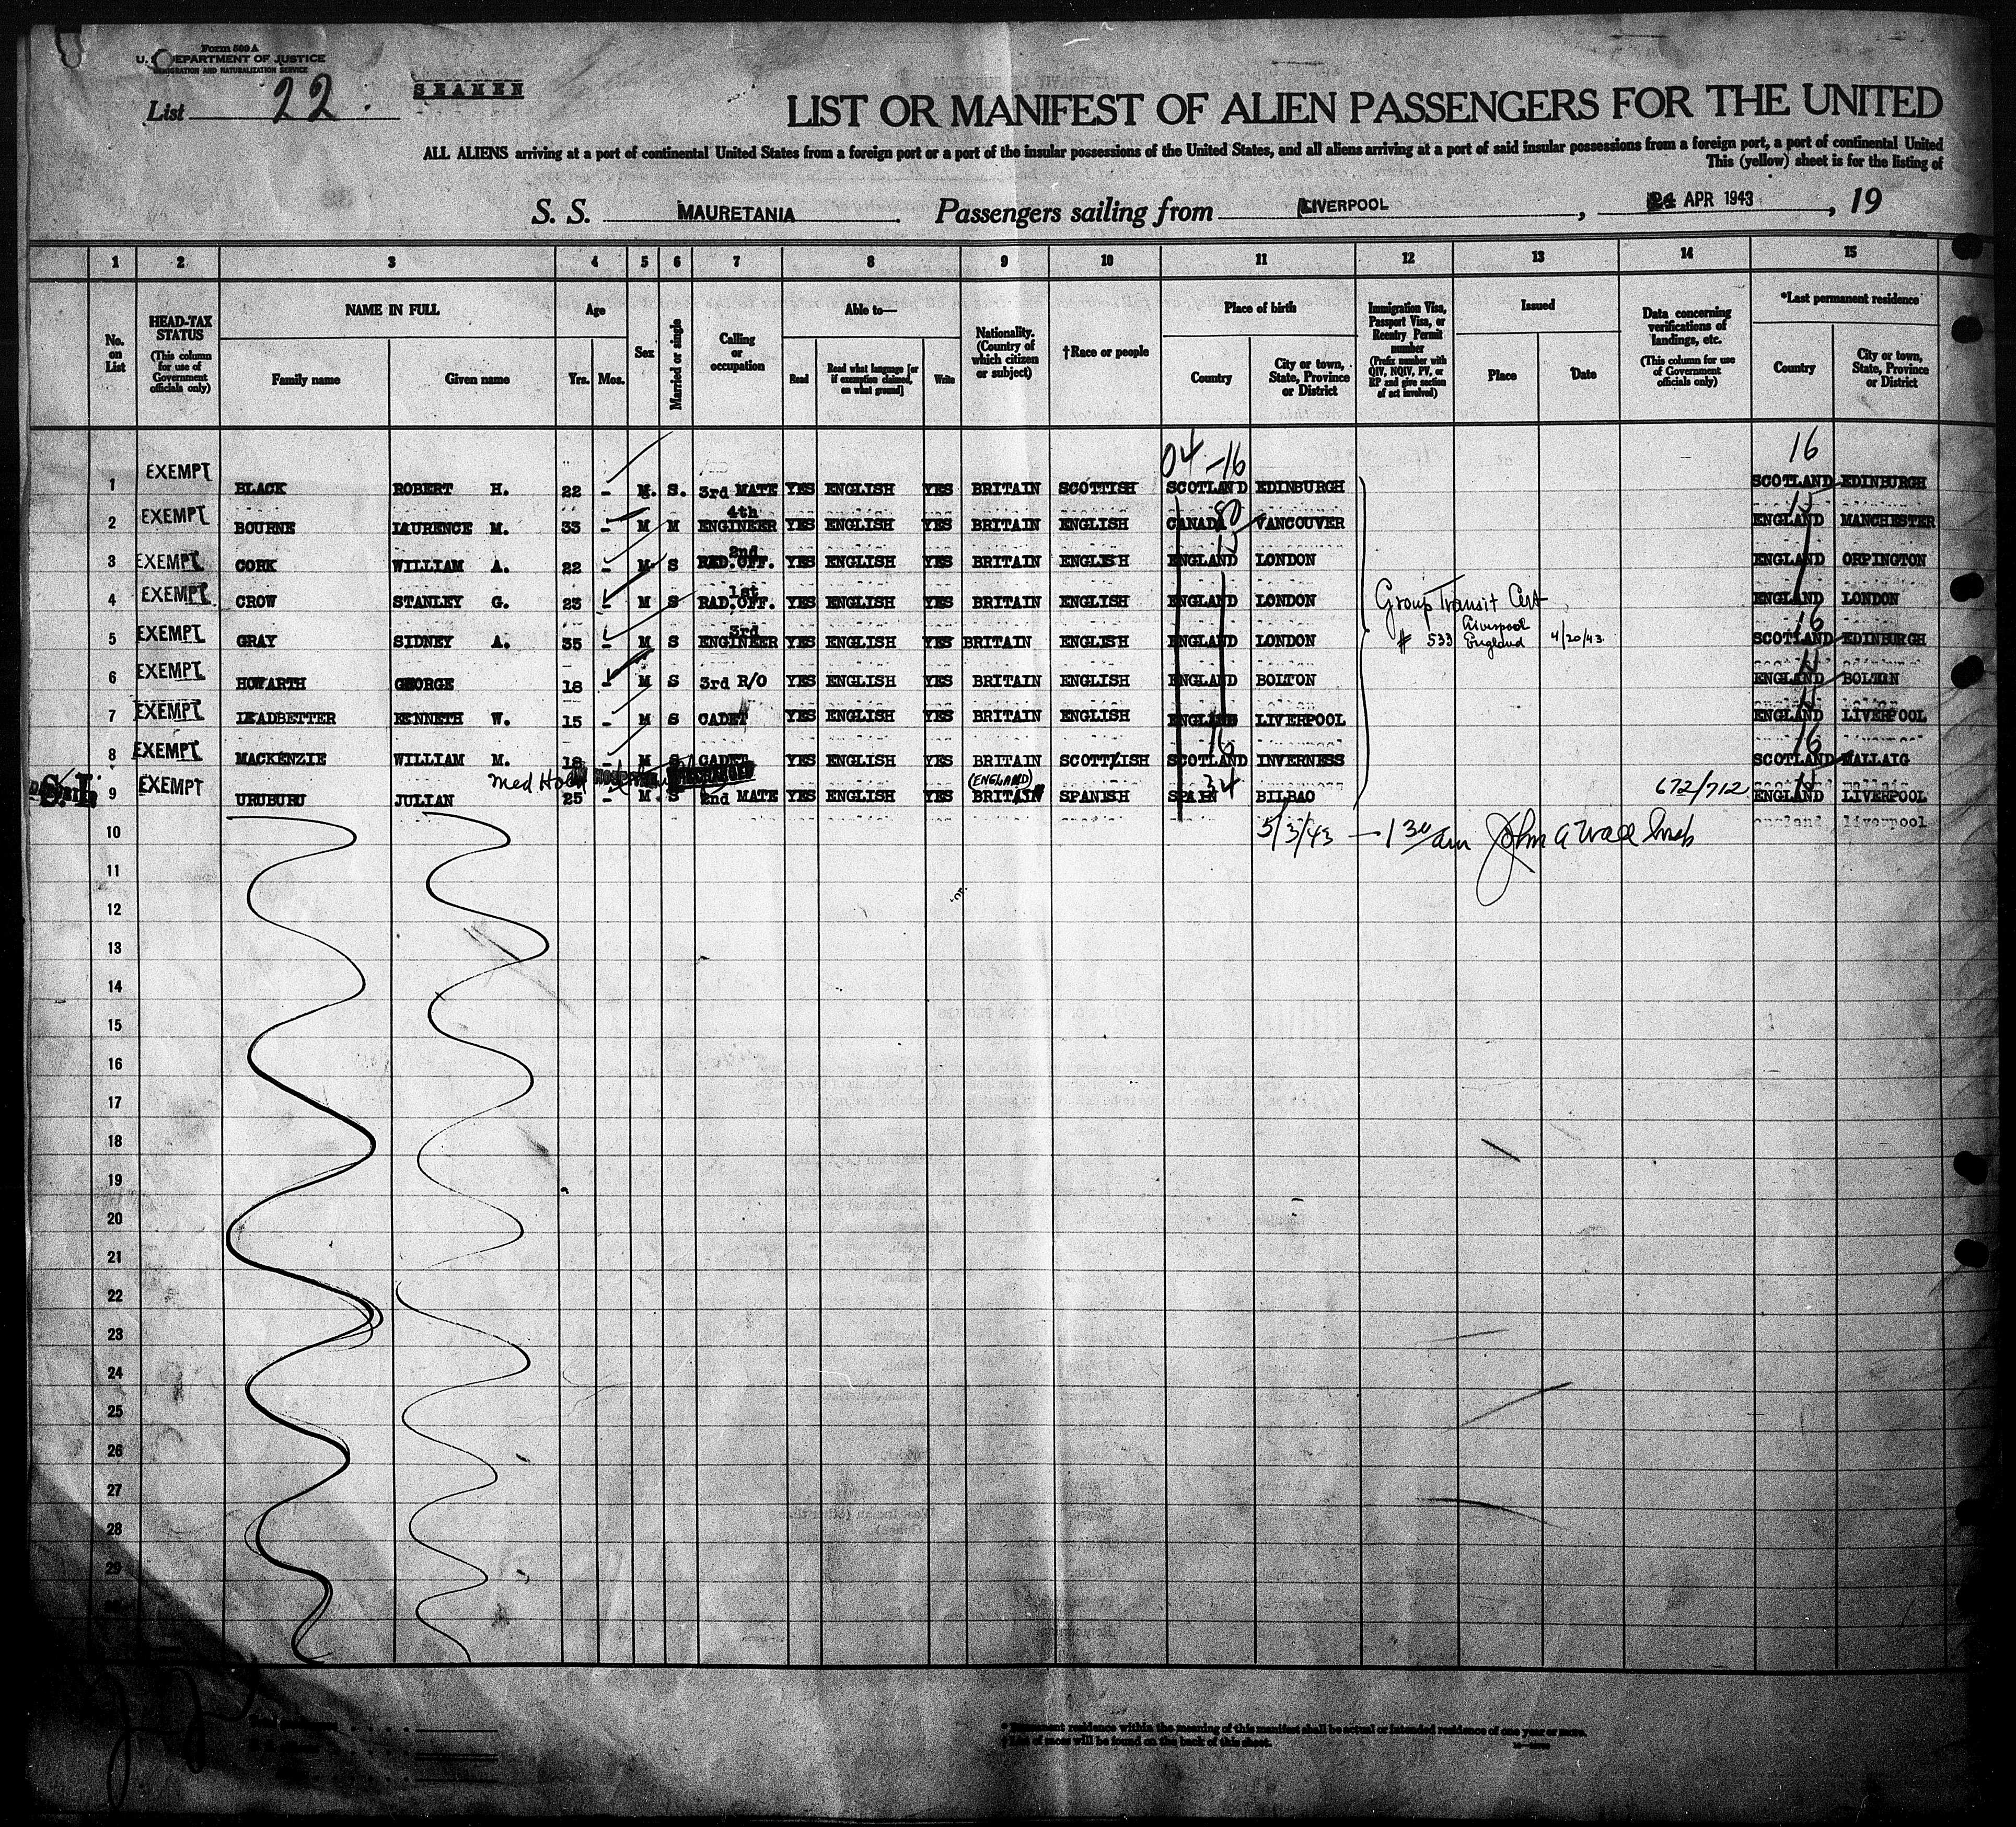 Form 500 A
U. S. DEPARTMENT OF JUSTICE
IMMIGRATION AND NATURALIZATION SERVICE
List 22.
SEAMEN
LIST OR MANIFEST OF ALIEN PASSENGERS FOR THE UNITED
ALL ALIENS arriving at a port of continental United States from a foreign port or a port of the insular possessions of the United States, and all aliens arriving at a port of said insular possessions from a foreign port, a port of continental United
This (yellow) sheet is for the listing of
S. S. MAURETANIA Passengers sailing from LIVERPOOL, 24 APR 1943, 19
1 2 3 4 5 6 7 8 9 10 11 12 13 14 15
No. on List
HEAD-TAX STATUS (This column for use of Government officials only)
NAME IN FULL
Family name Given name
Age
Yrs. Mos.
Sex
Married or single
Calling or occupation
Able to—
Read Read what language [or if exemption claimed, on what ground] Write
Nationality. (Country of which citizen or subject)
†Race or people
Place of birth
Country City or town, State, Province or District
Immigration Visa, Passport Visa, or Reentry Permit number (Prefix number with QIV, NQIV, PV, or RP and give section of act involved)
Issued
Place Date
Data concerning verifications of landings, etc. (This column for use of Government officials only)
*Last permanent residence
Country City or town, State, Province or District
04 -16 16
1 EXEMPT BLACK ROBERT H. 22 - M. S. 3rd MATE YES ENGLISH YES BRITAIN SCOTTISH SCOTLAND EDINBURGH SCOTLAND EDINBURGH
2 EXEMPT BOURNE LAURENCE M. 33 - M M 4th ENGINEER YES ENGLISH YES BRITAIN ENGLISH CANADA 80 VANCOUVER ENGLAND 15 MANCHESTER
3 EXEMPT CORK WILLIAM A. 22 - M. S 2nd RAD.OFF. YES ENGLISH YES BRITAIN ENGLISH ENGLAND 15 LONDON ENGLAND ORPINGTON
4 EXEMPT CROW STANLEY G. 23 - M S 1st RAD.OFF. YES ENGLISH YES BRITAIN ENGLISH ENGLAND LONDON ENGLAND LONDON
Group Transit Cert
5 EXEMPT GRAY SIDNEY A. 35 - M S 3rd ENGINEER YES ENGLISH YES BRITAIN ENGLISH ENGLAND LONDON # 533 Liverpool England 4/20/43 SCOTLAND 16 EDINBURGH
6 EXEMPT HOWARTH GEORGE 18 - M S 3rd R/O YES ENGLISH YES BRITAIN ENGLISH ENGLAND BOLTON ENGLAND 15 BOLTON
7 EXEMPT LEADBETTER KENNETH W. 15 - M S CADET YES ENGLISH YES BRITAIN ENGLISH ENGLAND LIVERPOOL ENGLAND 15 LIVERPOOL
8 EXEMPT MACKENZIE WILLIAM M. 18 - M S CADET YES ENGLISH YES BRITAIN SCOTTISH SCOTLAND 16 INVERNESS SCOTLAND 16 MALLAIG
S.I. Med Hold HOSPITAL DISCHARGED (ENGLAND)
9 EXEMPT URUBURU JULIAN 25 - M. S 2nd MATE YES ENGLISH YES BRITAIN SPANISH SPAIN 34 BILBAO 672/712 ENGLAND 15 LIVERPOOL
england liverpool
10 5/3/43 — 1 30 am John A Wall Insp
11
12
13
14
15
16
17
18
19
20
21
22
23
24
25
26
27
28
29
* Permanent residence within the meaning of this manifest shall be actual or intended residence of one year or more.
† List of races will be found on the back of this sheet.